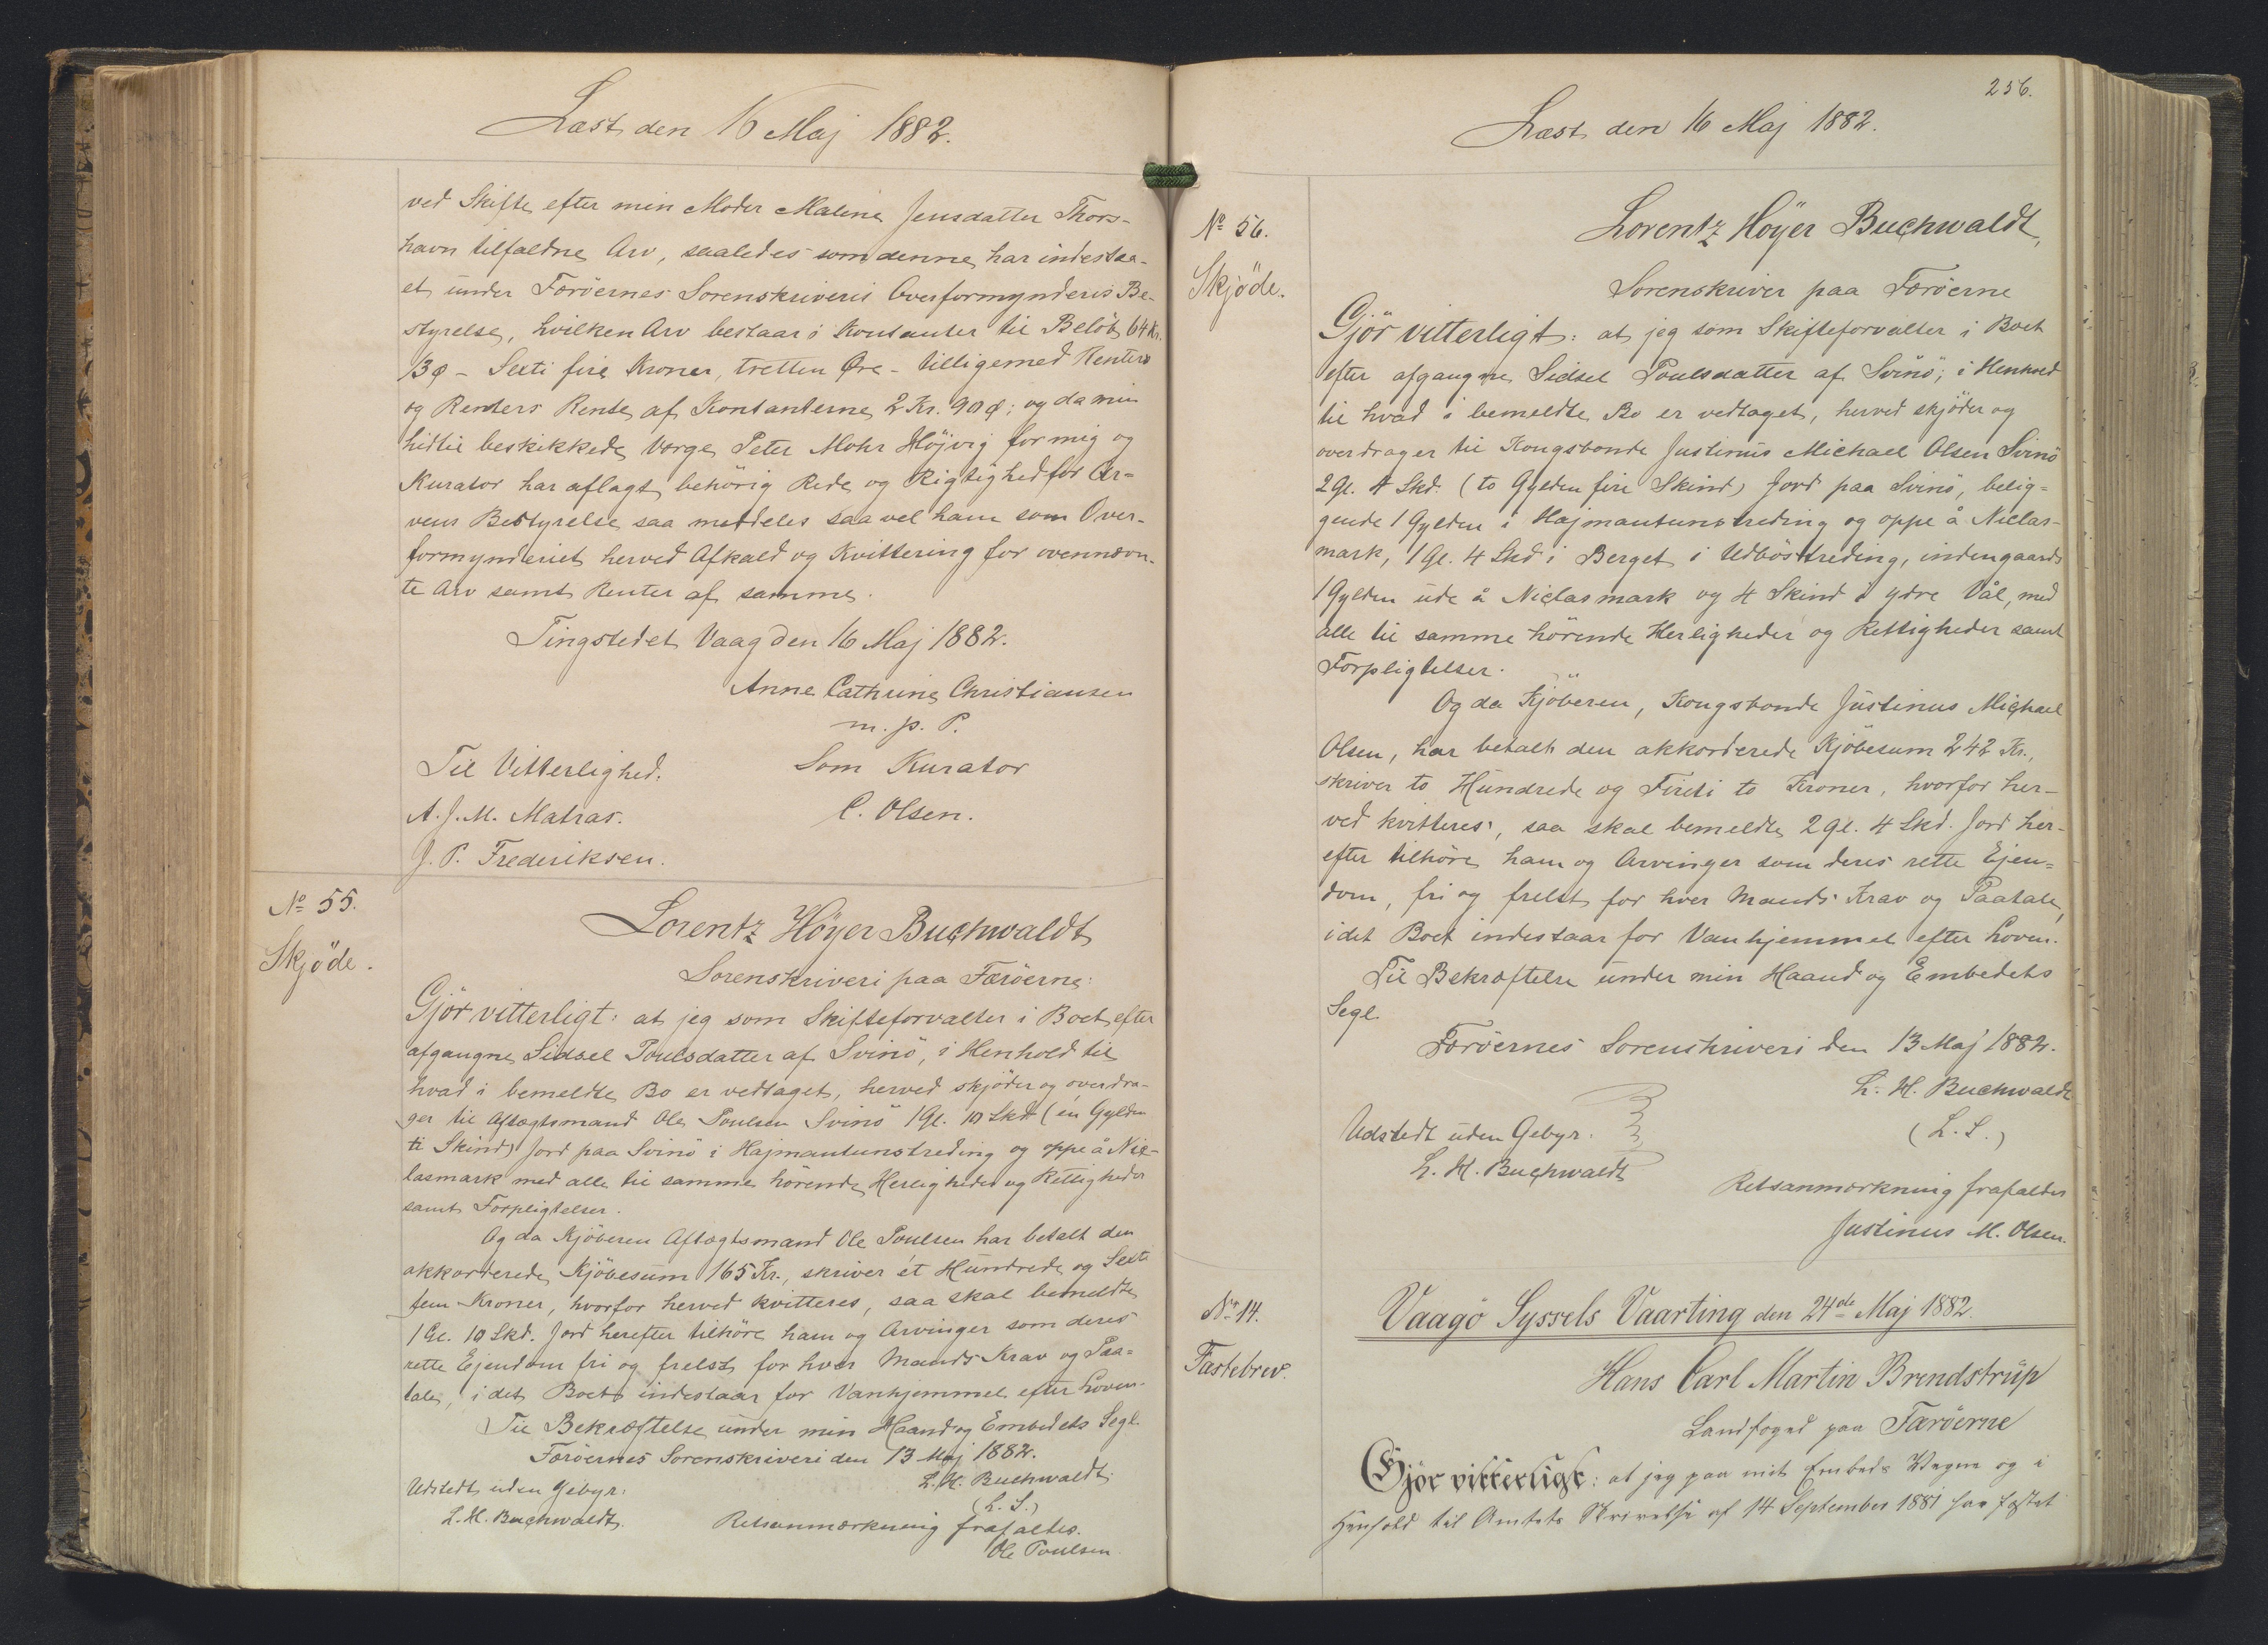 Læst den 16 Maj 1882.
ved Skifte efter min Moder Malene Jensdatter Thors-
havn tilfaldne Arv, saaledes som denne har indestaa-
et under Færöernes Sorenskriveri Overformynderis Be-
styrelse, hvilken Arv bestaar i Kontanter til Belöb 64 Kr.
13 Ø - Sexti fire Kroner, tretten Øre - tilligemed Renters
og Renters Rente af Kontanterne 2 Kr. 90 Ø; og da min
hidtil beskikkede Værge Peter Mohr Höjvig for mig og
Kurator har aflagt behörig Rede og Rigtighed for Ar-
vens Bestyrelse saa meddeles saavel ham som Over-
formynderiet herved Afkald og Kvittering for ovennævn-
te Arv samt Renter af samme.
Tingstedet Vaag den 16 Maj 1882.
Anne Cathrine Christiansen
m. p. P.
Til Vitterlighed.
Som Kurator
A. J. M. Matras.
C. Olsen.
J. P. Frederiksen.
No 55.
Skjöde.
Lorentz Höyer Buchwaldt
Sorenskriveri paa Færöerne:
Gjör vitterligt: at jeg som Skifteforvalter i Boet efter
afgangne Sidsel Poulsdatter af Svinö, i Henhold til
hvad i bemeldte Bo er vedtaget, herved skjöder og overdra-
ger til Aftægtsmand Ole Poulsen Svinö 1 Gl. 10 Skd (én Gylden
ti Skind) Jord paa Svinö i Hajmantunstreding og oppe å Nic-
lasmark med alle til samme hörende Herligheder og Rettigheder
samt Forpligtelser.
Og da Kjöberen Aftægtsmand Ole Poulsen har betalt den
akkorderede Kjöbesum 165 Kr., skriver ét Hundrede og Sexti
fem Kroner, hvorfor herved kvitteres, saa skal bemeldte
1 Gl. 10 Skd. Jord herefter tilhöre ham og Arvinger som deres
rette Ejendom fri og frelst for hver Mands Krav og Paa=
tale, i det Boet indestaar for Vanhjemmel efter Loven.
Til Bekræftelse under min Haand og Embedets Segl.
Færöernes Sorenskriveri den 13 Maj 1882.
L. H. Buchwaldt.
Udstedt uden Gebyr.
(L. S.)
L. H. Buchwaldt.
Retsanmærkning frafaldes.
Ole Poulsen
256.
Læst den 16 Maj 1882.
No 56.
Skjöde.
Lorentz Höyer Buchwaldt,
Sorenskriver paa Færöerne
Gjör vitterligt: at jeg som Skifteforvalter i Boet
efter afgangne Sidsel Poulsdatter af Svinö, i Henhold
til hvad i bemeldte Bo er vedtaget, herved skjöder og
overdrager til Kongsbonde Justinus Michael Olsen Svinö
2 Gl. 4 Skd. (to Gylden fire Skind) Jord paa Svinö, belig=
gende 1 Gylden i Hajmantunstreding og oppe å Niclas-
mark, 1 Gl. 4 Skd i Berget i Udböstreding, indengaards
1 Gylden ude å Niclasmark og 4 Skind i ydre Vål, med
alle til samme hörende Herligheder og Rettigheder samt
Forpligtelser.
Og da Kjöberen, Kongsbonde Justinus Michael
Olsen, har betalt den akkorderede Kjöbesum 242 Kr.,
skriver to Hundrede og Firti to Kroner, hvorfor her-
ved kvitteres, saa skal bemeldte 2 Gl. 4 Skd. Jord her-
efter tilhöre ham og Arvinger som deres rette Ejen=
dom, fri og frelst for hver Mands Krav og Paatale,
idet Boet indestaar for Vanhjemmel efter Loven.
Til Bekræftelse under min Haand og Embedets
Segl.
Færöernes Sorenskriveri den 13 Maj 1882.
L. H. Buchwaldt
Udstedt uden Gebyr.
(L. S.)
L. H. Buchwaldt
Retsanmærkning frafaldes
Justinus M. Olsen.
Vaagö Syssels Vaarting den 24de Maj 1882.
No 14.
Fæstebrev.
Hans Carl Martin Brendstrüp
Landfoged paa Færöerne
Gjör vitterligt: at jeg paa mit Embeds Vegne og i
Henhold til Amtets Skrivelse af 14 September 1881 har fæstet